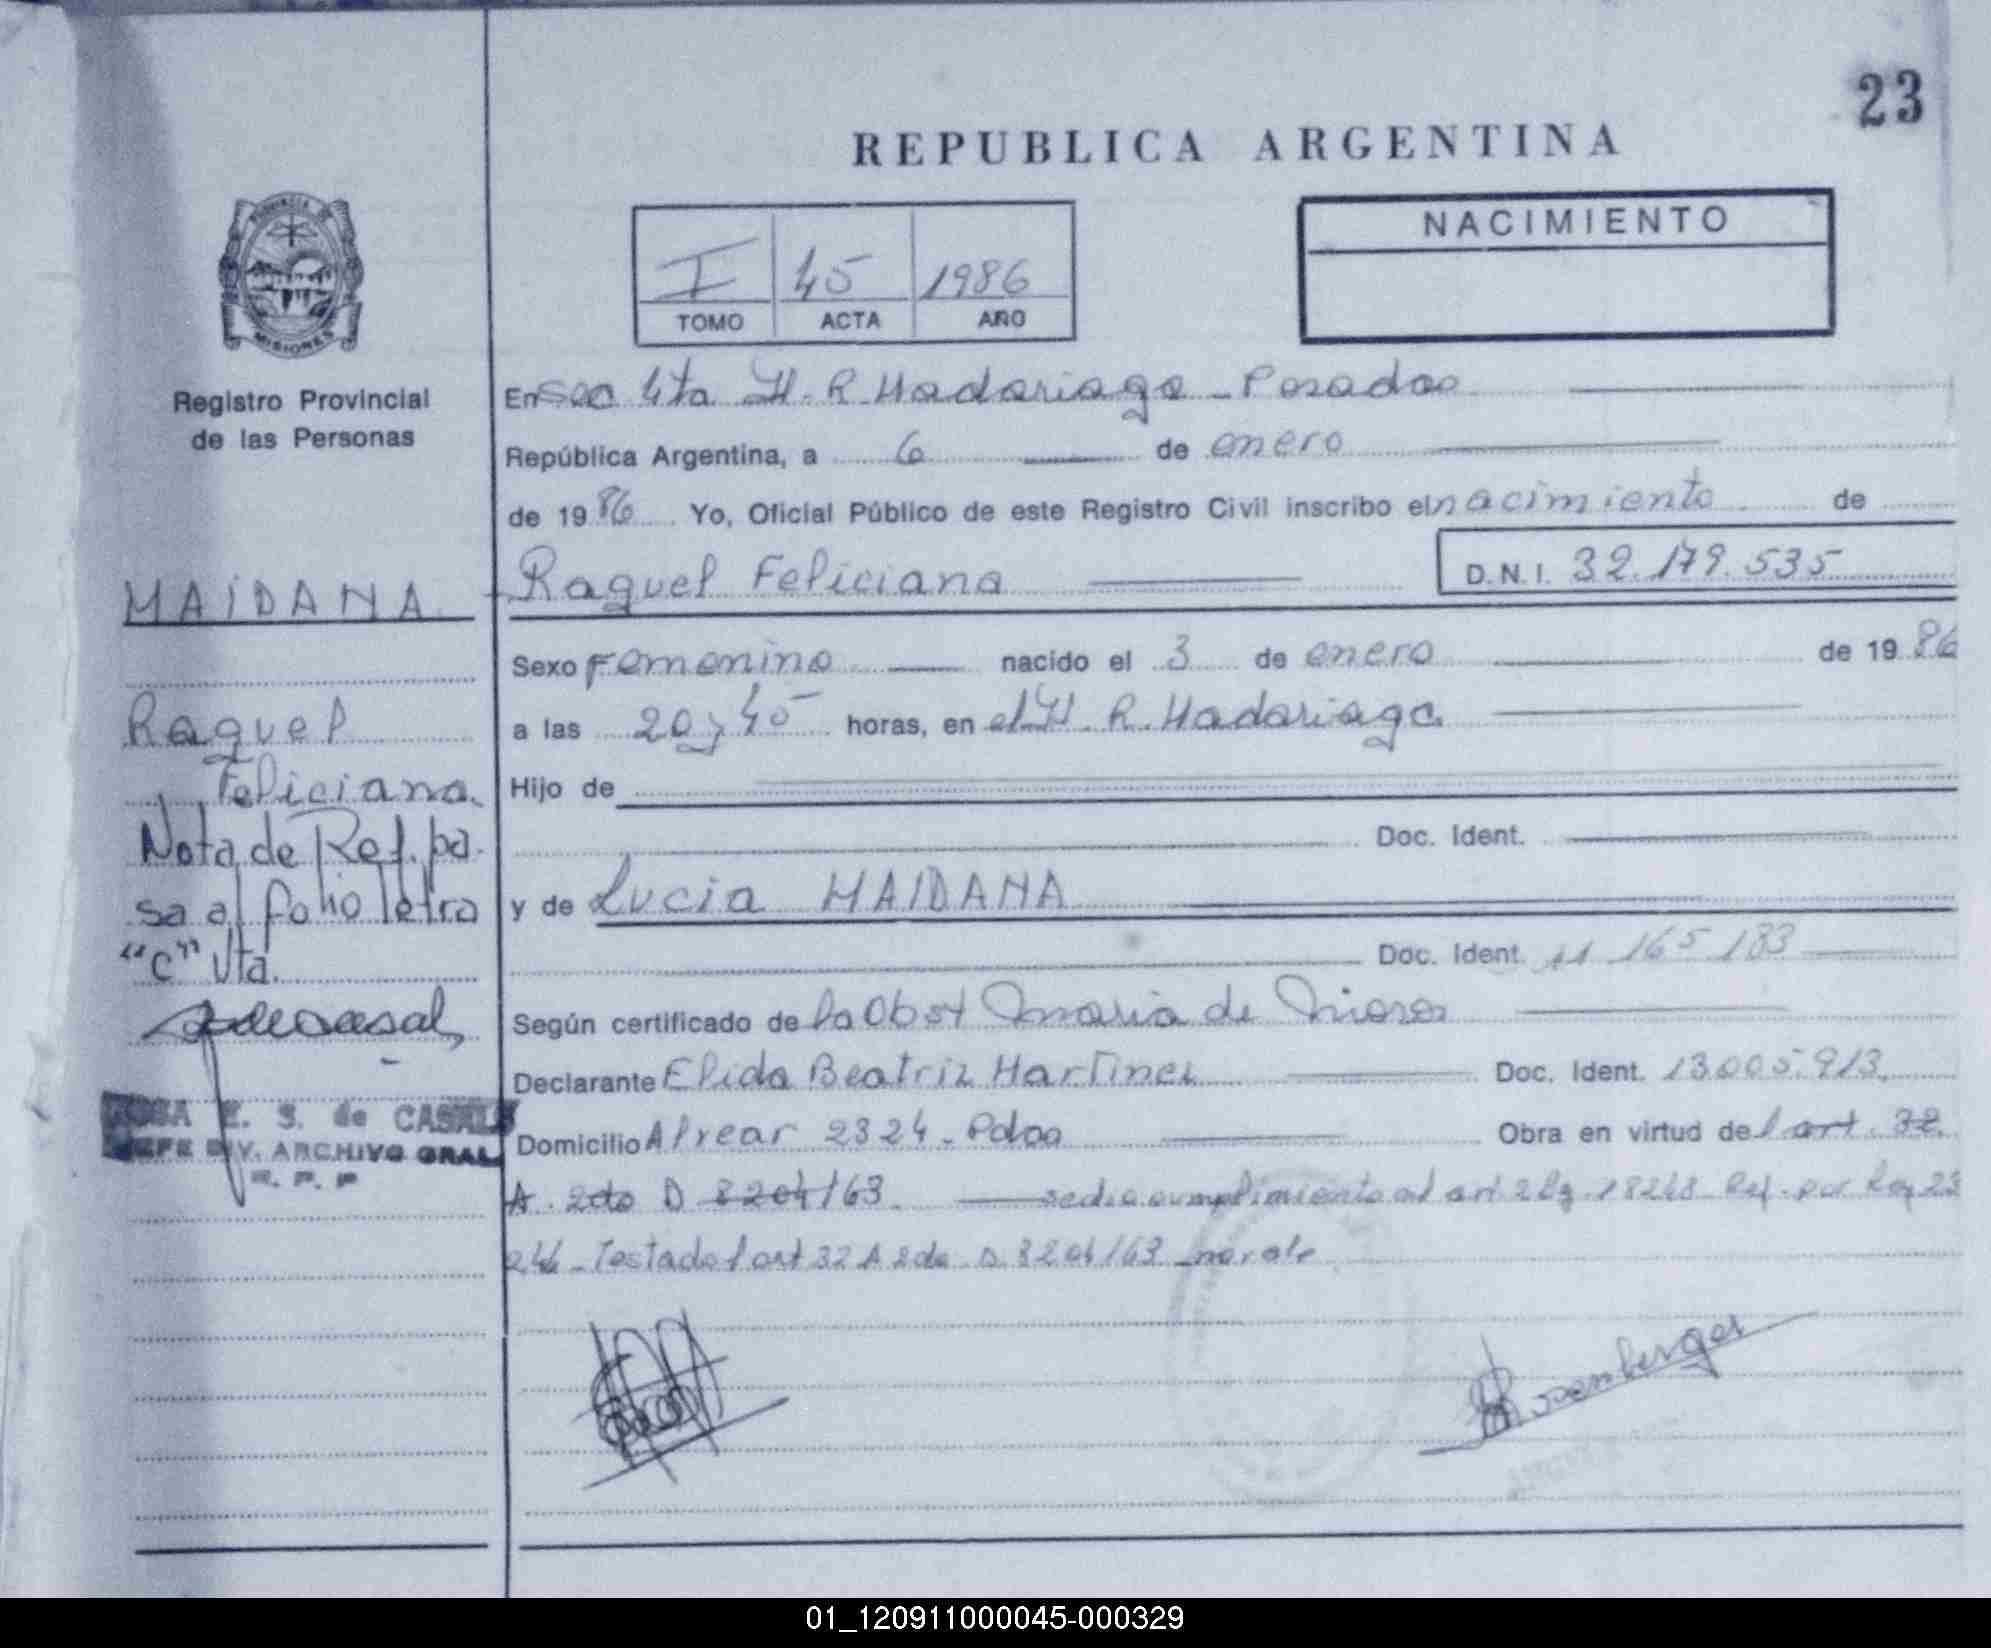 23
REPUBLICA ARGENTINA
PROVINCIA DE
MISIONES
Registro Provincial
de las Personas
I 45 1986
TOMO ACTA AÑO
NACIMIENTO
En Sec 4ta H. R. Madariaga - Posadas
República Argentina, a 6 de enero
de 1986 Yo, Oficial Público de este Registro Civil inscribo el nacimiento de
Raquel Feliciana D.N.I. 32.179.535
Sexo Femenino nacido el 3 de enero de 1986
a las 20 y 45 horas, en el H. R. Madariaga
Hijo de
Doc. Ident.
y de Lucia MAIDANA
Doc. Ident. 11 165 183
Según certificado de la Obst Maria de
Declarante Elida Beatriz Martinez Doc. Ident. 13.005.913
Domicilio Alvear 2324 - Pdas Obra en virtud del art. 32
A. 2do D 8204/63 se dio cumplimiento al art 2 Lg. 18248 Ref. por Ley 23
264 - Testado l art 32 A 2do D. 8204/63 no vale
MAIDANA
Raquel
Feliciana
Nota de Ref. pa-
sa al folio letra
"C" Vta.
ROSA E. S. de CASALS
JEFE DIV. ARCHIVO GRAL
R. P. P
01_120911000045-000329